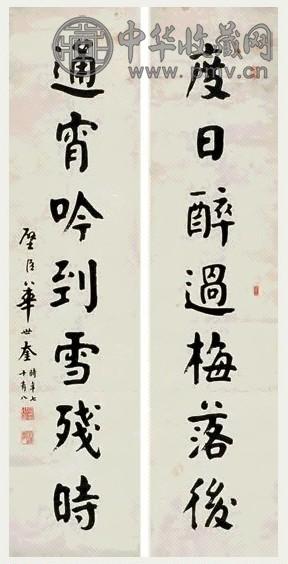 中华收藏网
度日醉過梅落後
通宵吟到雪殘時
壁臣華世奎
時年七
十有八